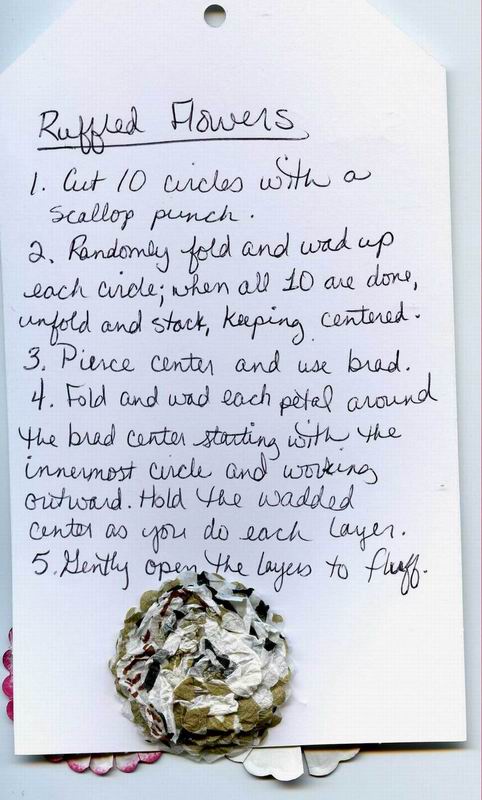 Ruffled Flowers
1. Cut 10 circles with a
scallop punch.
2. Randomly fold and wad up
each circle; when all 10 are done,
unfold and stack, keeping centered.
3. Pierce center and use brad.
4. Fold and wad each petal around
the brad center starting with the
innermost circle and working
outward. Hold the wadded
center as you do each layer.
5. Gently open the layers to fluff.